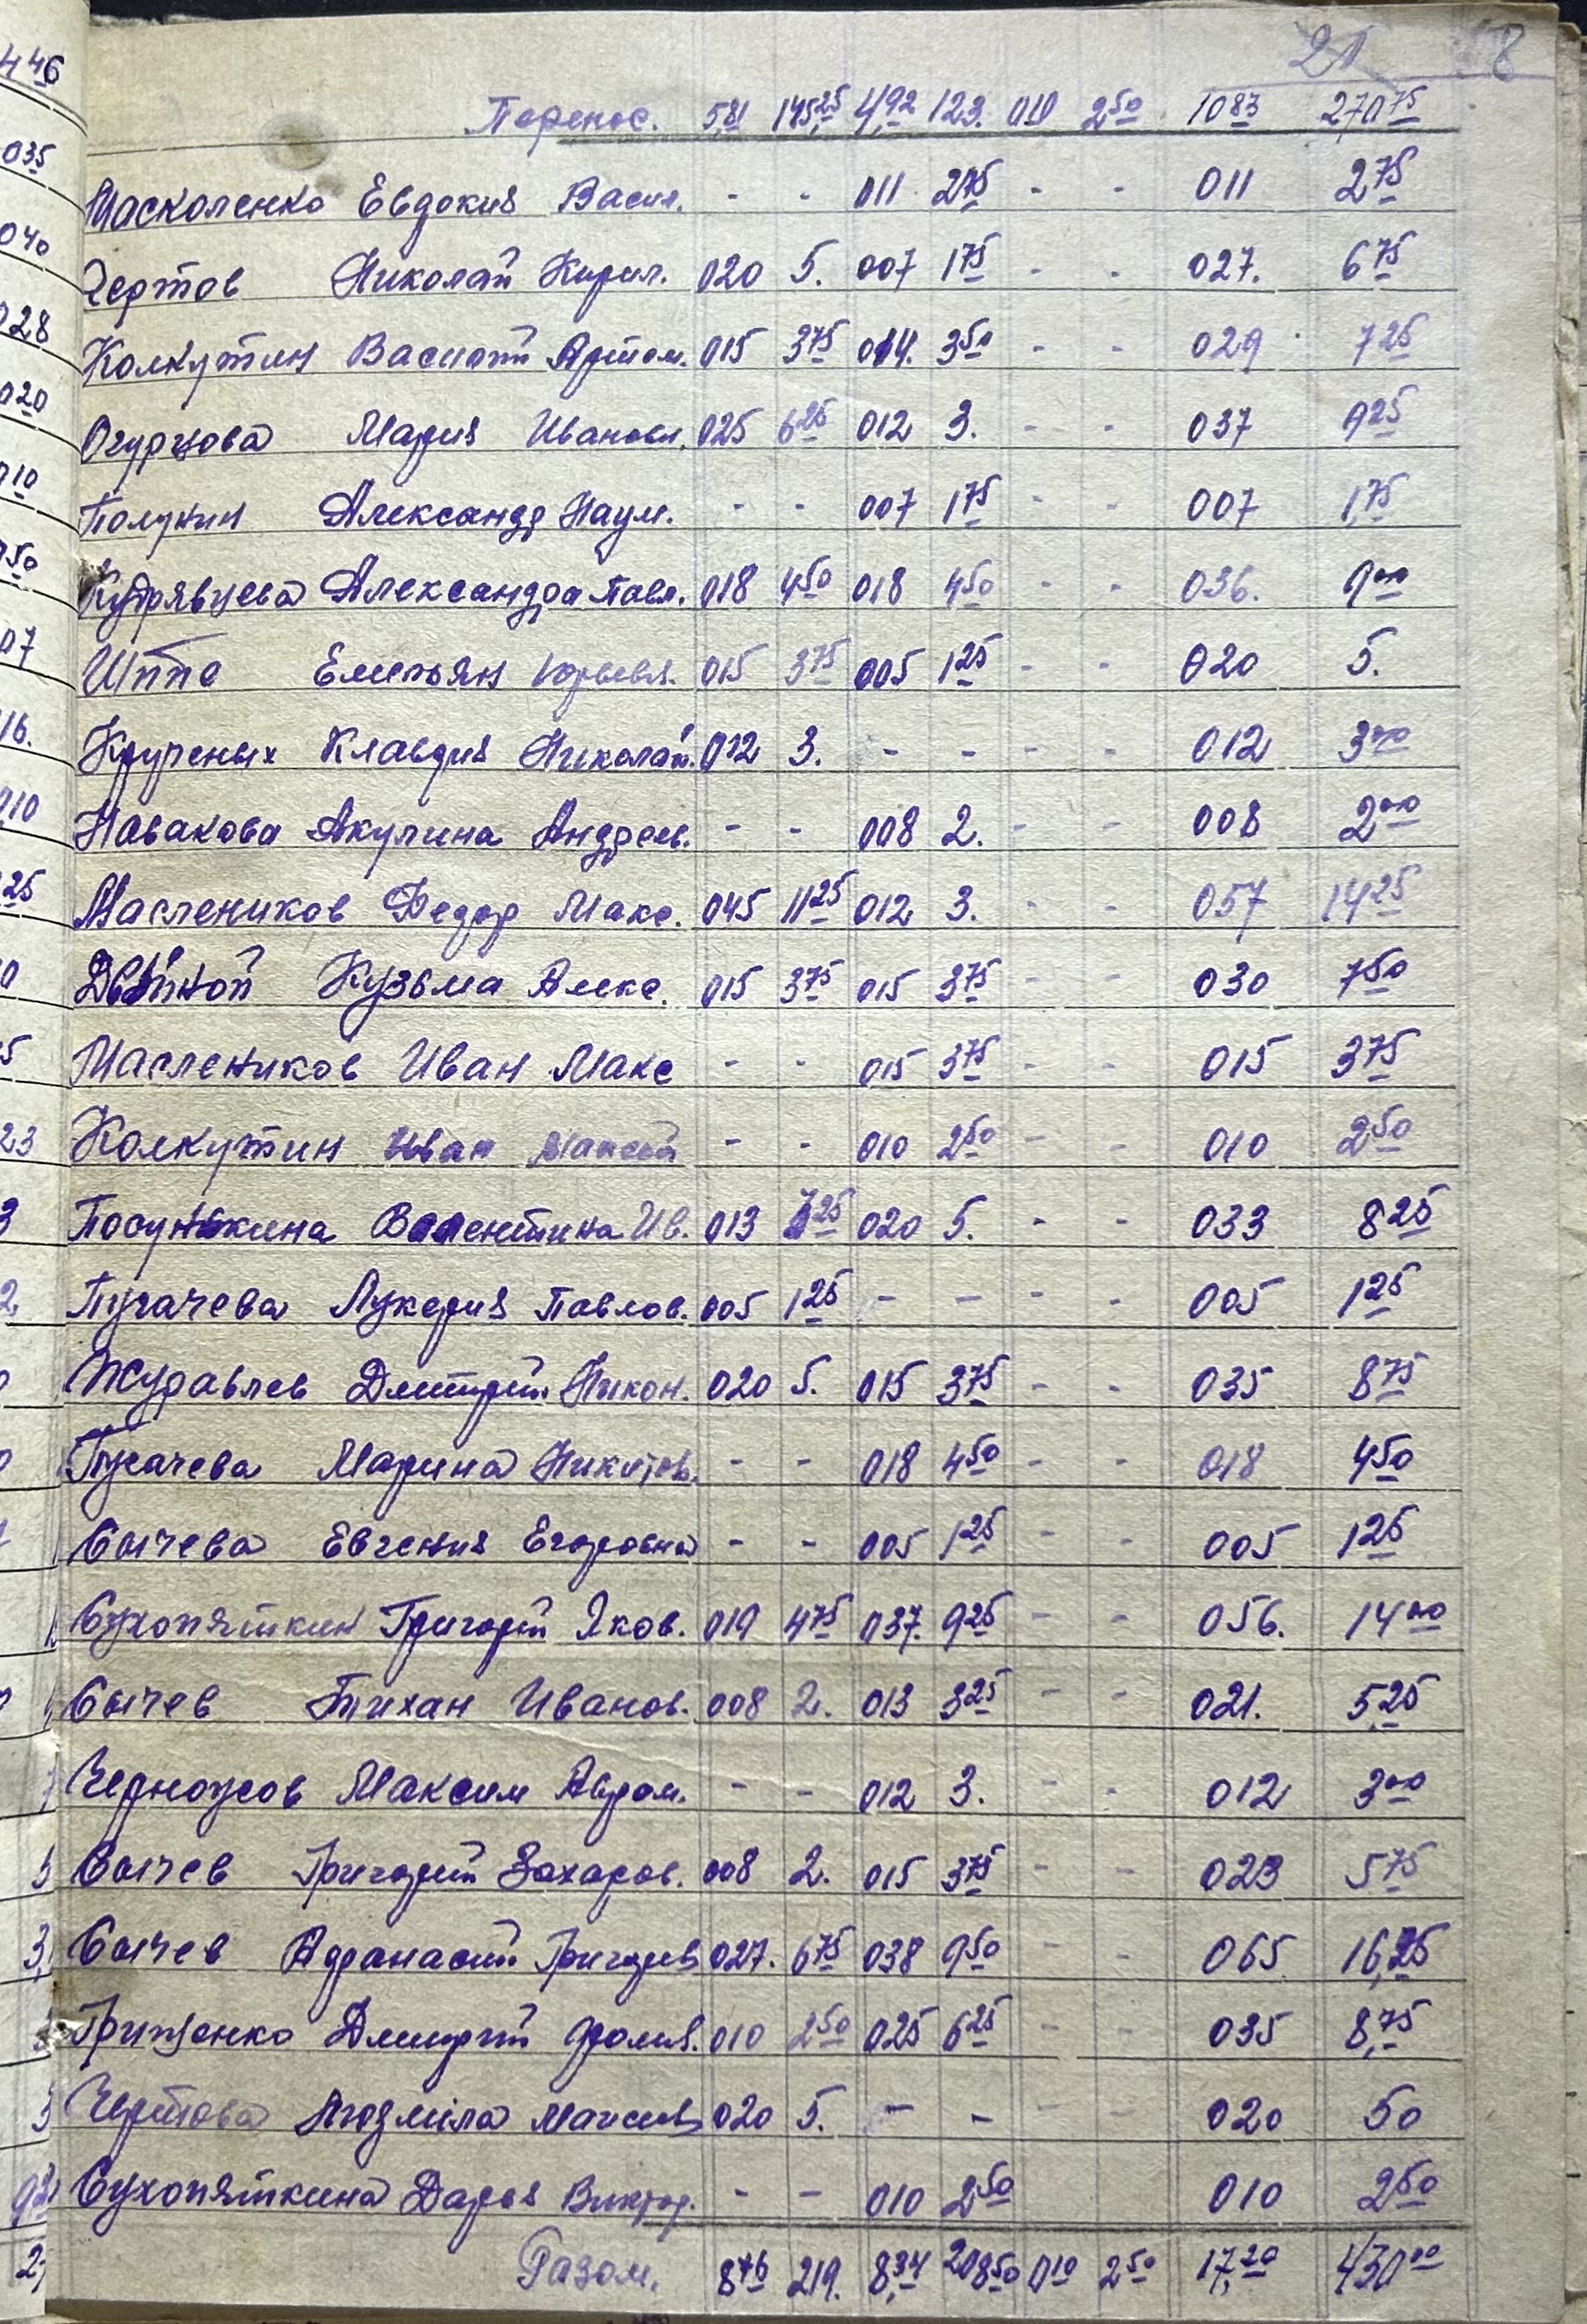 21 18
Перенос. 5,81 145,25 4,92 123. 010 2 50 10 83 270 75
Масколенко Евдокия Васил. - - 011 2 75 - - 011 2 75
Чертов Николай Кирил. 020 5. 007 1 75 - - 027. 6 75
Колкутин Василий Артом. 015 3 75 014. 3 50 - - 029 7 25
Огурцова Мария Ивановн. 025 6 25 012 3. - - 037 9 25
Полунин Александр Наум. - - 007 1 75 - - 007 1,75
Кудрявцева Александра Павл. 018 4 50 018 4 50 - - 036. 9 00
Шппе Емельян 015 3 75 005 1 25 - - 020 5.
Крученых Клавдия Николай. 012 3. - - - - 012 3 00
Навакова Акулина Андреев. - - 008 2. - - 008 2 00
Маслеников Федор Макс. 045 11 25 012 3. - - 057 14 25
Двойной Кузьма Алекс. 015 3 75 015 3 75 - - 030 7 50
Маслеников Иван Макс - - 015 3 75 - - 015 3 75
Колкутин Иван - - 010 2 50 - - 010 2 50
Посунькина Валентина Ив. 013 3 25 020 5. - - 033 8 25
Пугачева Лукерия Павлов. 005 1 25 - - - - 005 1 25
Журавлев Дмитрий Никон. 020 5. 015 3 75 - - 035 8 75
Пугачева Марина Никитов. - - 018 4 50 - - 018 4 50
Сычева Евгения Егоровна - - 005 1 25 - - 005 1 25
Сухопяткин Григорий Яков. 019 4 75 037. 9 25 - - 056. 14 00
Сычев Тихан Иванов. 008 2. 013 3 25 - - 021. 5,25
Черноусов Максим Аврам. - - 012 3. - - 012 3 00
Сычев Григорий Захаров. 008 2. 015 3 75 - - 023 5 75
Сычев Афанасий Григорьев 027. 6 75 038 9 50 - - 065 16,25
Грищенко Дмитрий Фомич. 010 2 50 025 6 25 - - 035 8,75
Чертова Людміла Маисеев 020 5. - - - - 020 50
Сухопяткина Дарья Виктор. - - 010 2 50 010 2 50
Разом. 8 76 219. 8,34 208 50 010 2 50 17,20 430 00